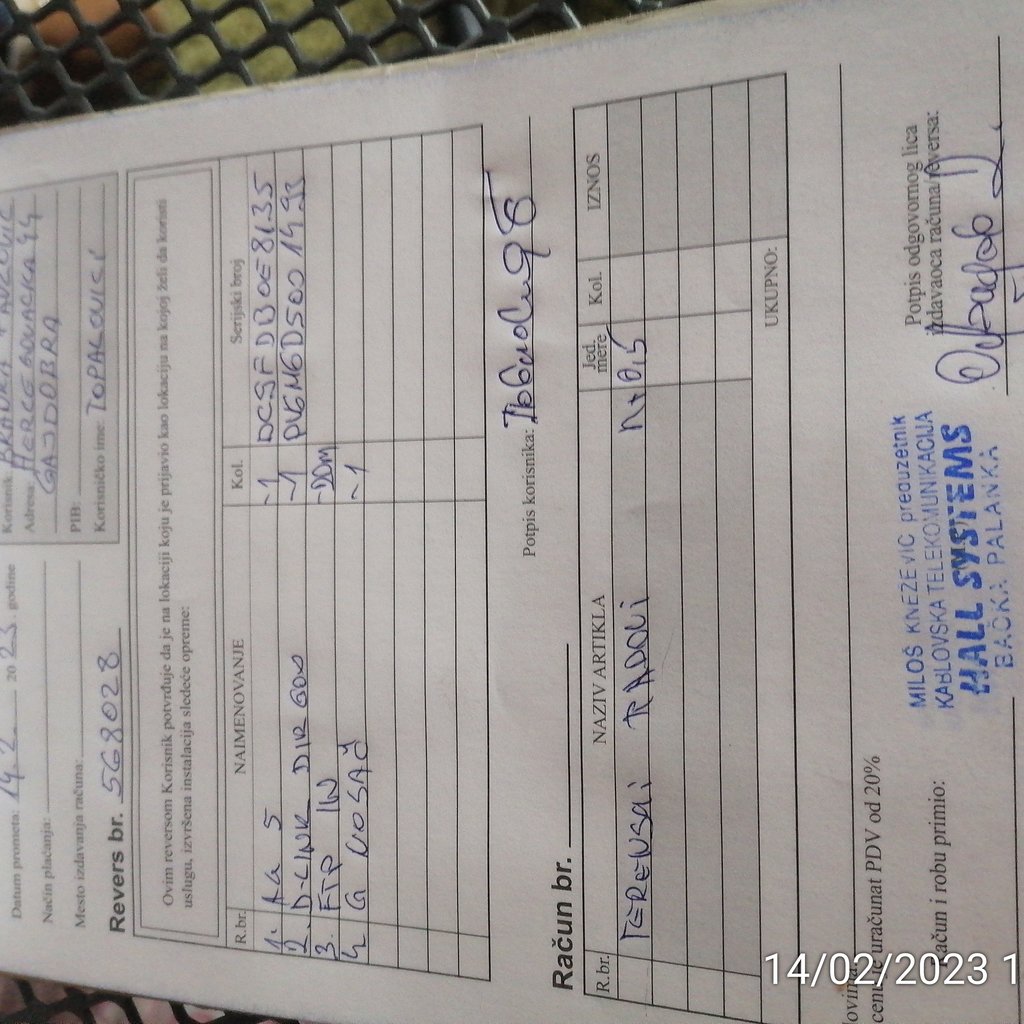 Datum prometa: 14.2. 2023. godine
Način plaćanja:
Mesto izdavanja računa:
Korisnik:
Adresa: HERCEGOVAČKA 44
GAJDOBRA
PIB:
Korisničko ime: TOPALOVICI
Revers br. 568028
Ovim reversom Korisnik potvrđuje da je na lokaciji koju je prijavio kao lokaciju na kojoj želi da koristi
uslugu, izvršena instalacija sledeće opreme:
R.br. NAIMENOVANJE Kol. Serijski broj
1. AG 5 ~1
2. D-LINK DIR 600 ~1
3. FTP ~20m
4 G NOSAČ ~1
Potpis korisnika:
Račun br.
R.br. NAZIV ARTIKLA Jed. mere Kol. IZNOS
TERENSKI RADOVI
UKUPNO:
cenu je uračunat PDV od 20%
Račun i robu primio:
MILOŠ KNEŽEVIĆ preduzetnik
KABLOVSKA TELEKOMUNIKACIJA
HALL SYSTEMS
BAČKA PALANKA
Potpis odgovornog lica
izdavaoca računa/reversa:
14/02/2023 1